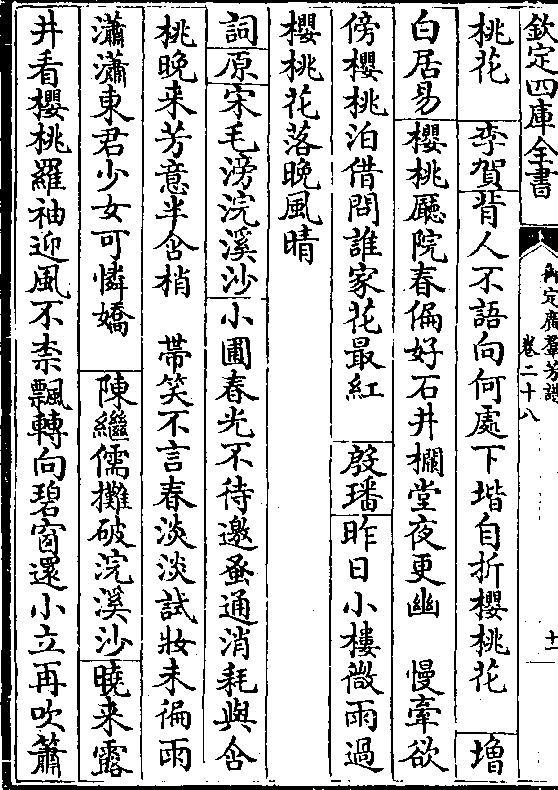 欽定四庫全書
御定廣羣芳譜
卷二十八
十一
桃花　李賀背人不語向何處下堦自折櫻桃花　增
白居易櫻桃廳院春偏好石井欄堂夜更幽　慢牽欲
傍櫻桃泊借問誰家花最紅　殷璠昨日小樓微雨過
櫻桃花落晚風晴
詞原宋毛滂浣溪沙小圃春光不待邀蚤通消耗與含
桃晚来芳意半含梢　帶笑不言春淡淡試妝未徧雨
瀟瀟東君少女可憐嬌　陳繼儒攤破浣溪沙曉来露
井看櫻桃羅袖迎風不柰飄轉向碧窗還小立再吹簫